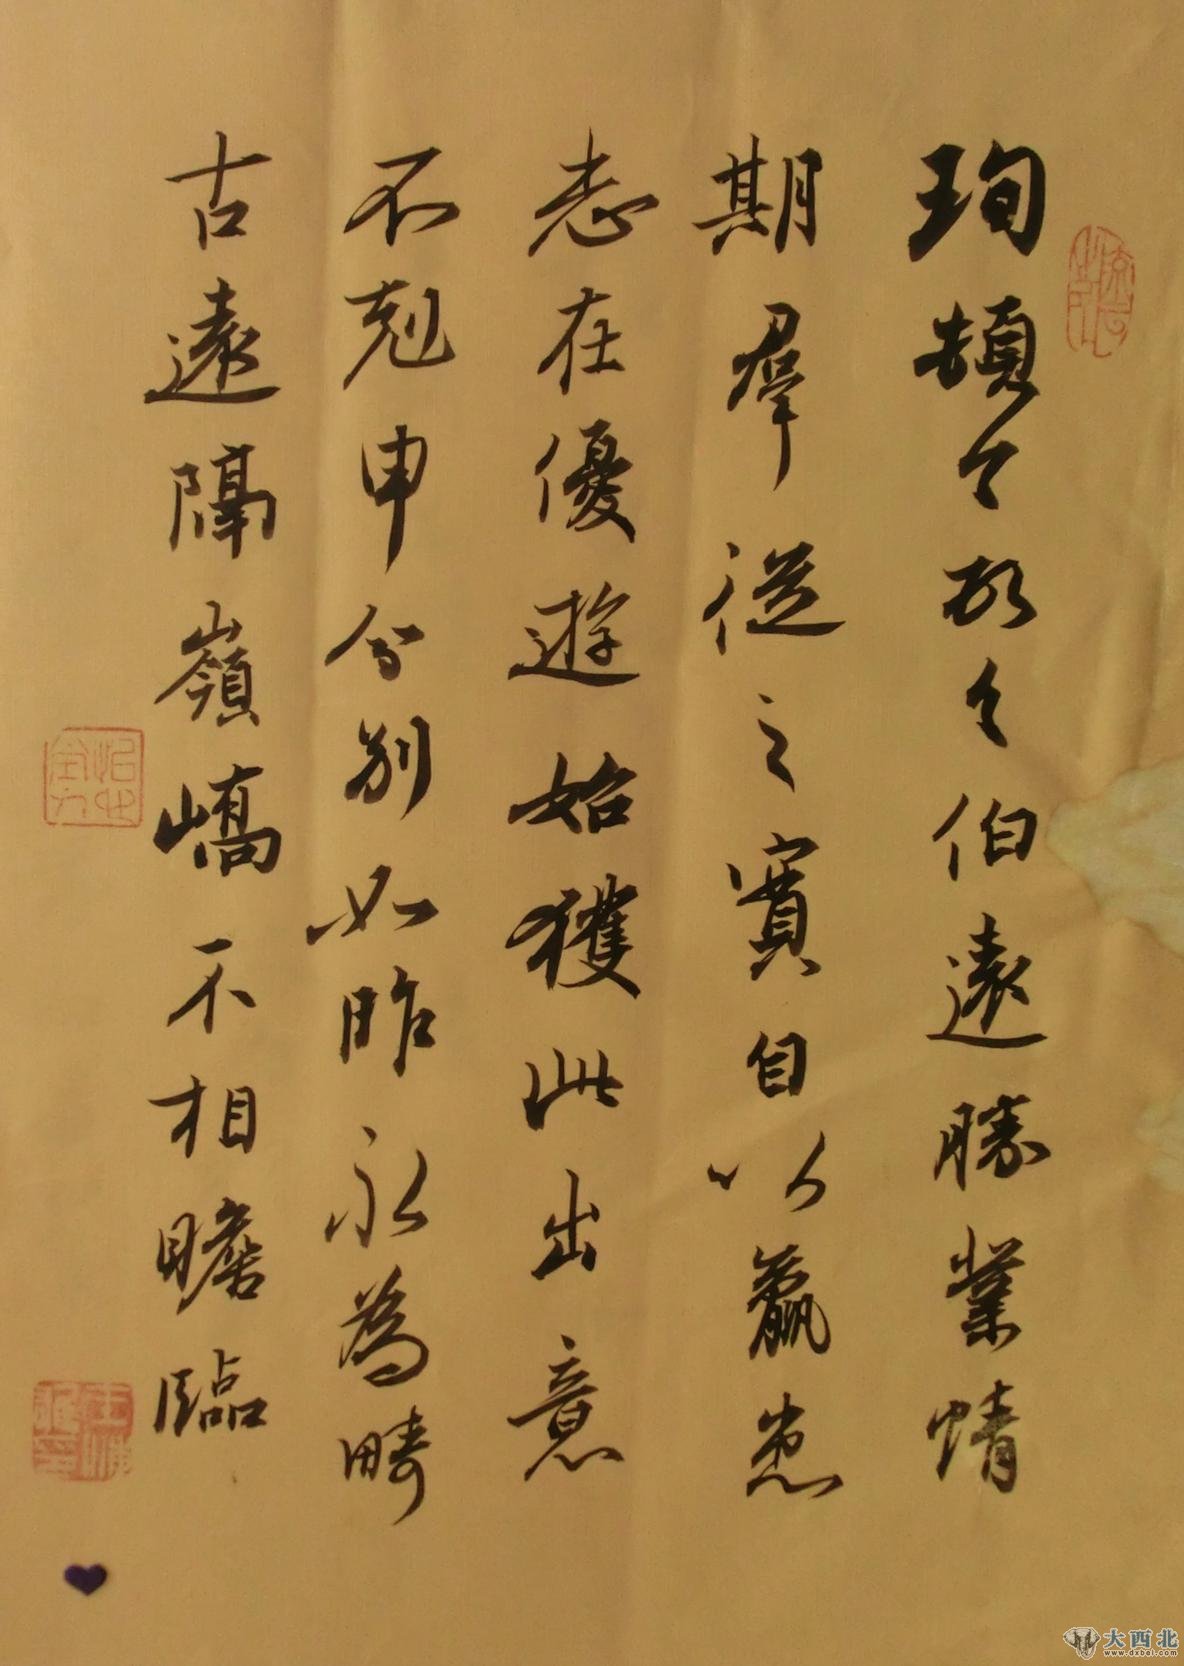 珣頓首頓首伯遠勝業情
期群從之寶自以羸患
志在優遊始獲此出意
不剋申分別如昨永為疇
古遠隔嶺嶠不相瞻臨
大西北
www.dxbei.com